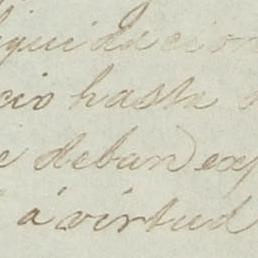 iquidacion
cio hasta
e deban exp
á virtud